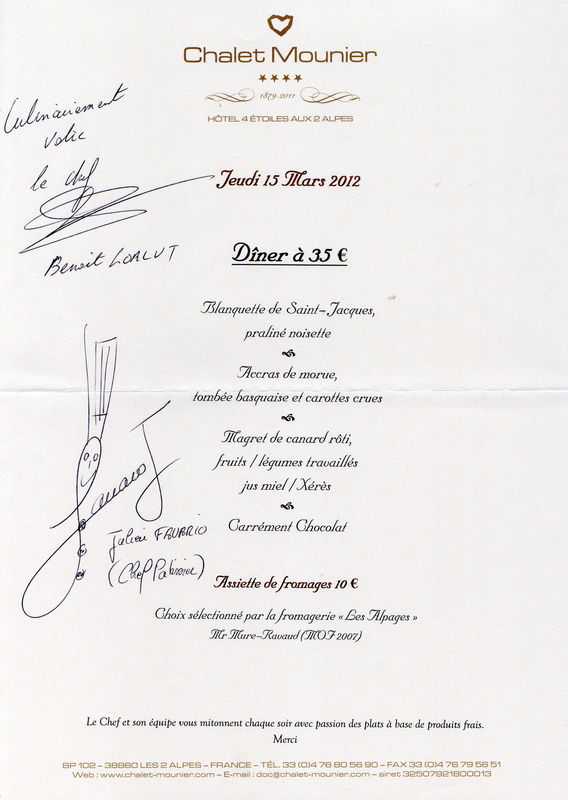 Chalet Mounier
1879-2011
HÔTEL 4 ÉTOILES AUX 2 ALPES
Culinairement
Votre
le chef
Benoit
Jeudi 15 Mars 2012
Dîner à 35 €
Blanquette de Saint-Jacques,
praliné noisette
Accras de morue,
tombée basquaise et carottes crues
Magret de canard rôti,
fruits / légumes travaillés
jus miel / Xérès
Carrément Chocolat
Julien
(Chef Patissier)
Assiette de fromages 10 €
Choix sélectionné par la fromagerie « Les Alpages »
Mr Mure-Ravaud (MOF 2007)
Le Chef et son équipe vous mitonnent chaque soir avec passion des plats à base de produits frais.
Merci
BP 102 – 38860 LES 2 ALPES – FRANCE – TÉL. 33 (0)4 76 80 56 90 – FAX 33 (0)4 76 79 56 51
Web : www.chalet-mounier.com – E-mail : doc@chalet-mounier.com – siret 32507921800013